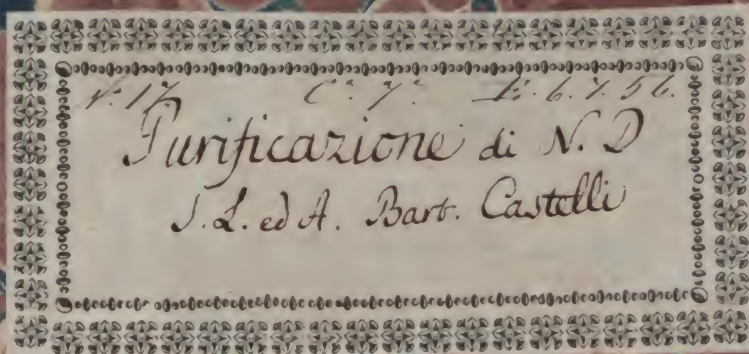 N. 17. C.a 7.a L. 6. 7. 5 6.
Purificazione di N. D
S. L. ed A. Bart. Castelli